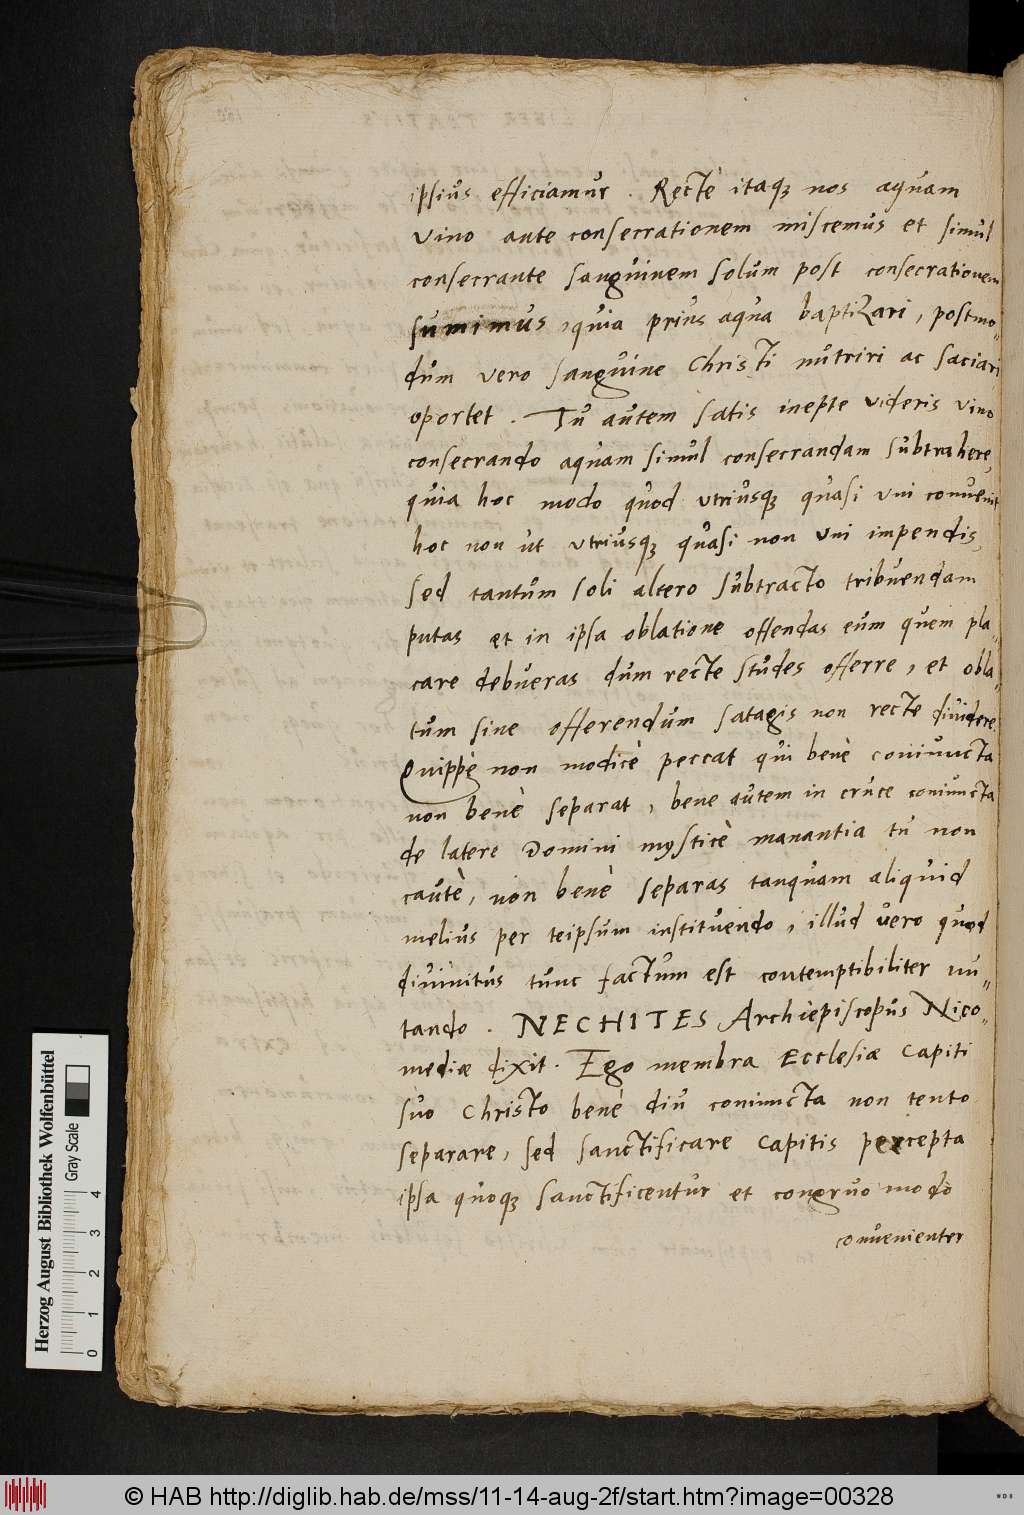 ipsius efficiamur. Rectè itaqꝫ nos aquam
vino ante consecrationem miscemus et simul
consecrante sanguinem solum post consecrationem
sumimus, quia prius aqua baptizari, postmo„
dum vero sanguine Christi nutriri ac saciari
oportet. Tu autem satis inepte videris vino
consecrando aquam simul consecrandam subtrahere,
quia hoc modo quod utriusqꝫ quasi uni convenit
hoc non ut utriusqꝫ quasi non uni impendis,
sed tantum soli altero subtracto tribuendam
putas et in ipsa oblatione offendas eum quem pla„
care debueras dum recte studes offerre, et obla„
tum sine offerendum satagis non recte dividere.
Quippè non modicè peccat qui benè coniuncta
non benè separat, bene autem in cruce coniuncta
de latere Domini mysticè manantia tu non
cautè, non benè separas tanquam aliquid
melius per teipsum instituendo, illud vero quod
divinitus tunc factum est contemptibiliter nu„
tando. NECHITES Archiepiscopus Nico„
mediæ dixit. Ego membra Ecclesiæ Capiti
suo Christo benè diu coniuncta non tento
separare, sed sanctificare Capitis percepta
ipsa quoqꝫ sanctificentur et congruo modo
convenienter
Herzog August Bibliothek Wolfenbüttel
Gray Scale
0 1 2 3 4
© HAB http://diglib.hab.de/mss/11-14-aug-2f/start.htm?image=00328